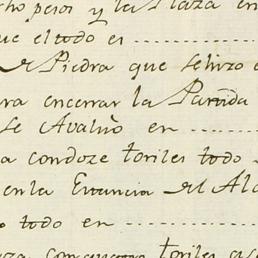 cho pesos y la Plaza en
ue el todo es
de Piedra que se hizo
ra encerrar la Partida
se Avaluo en
a con doze toriles todo
en la Estancia del Al
todo en
toriles